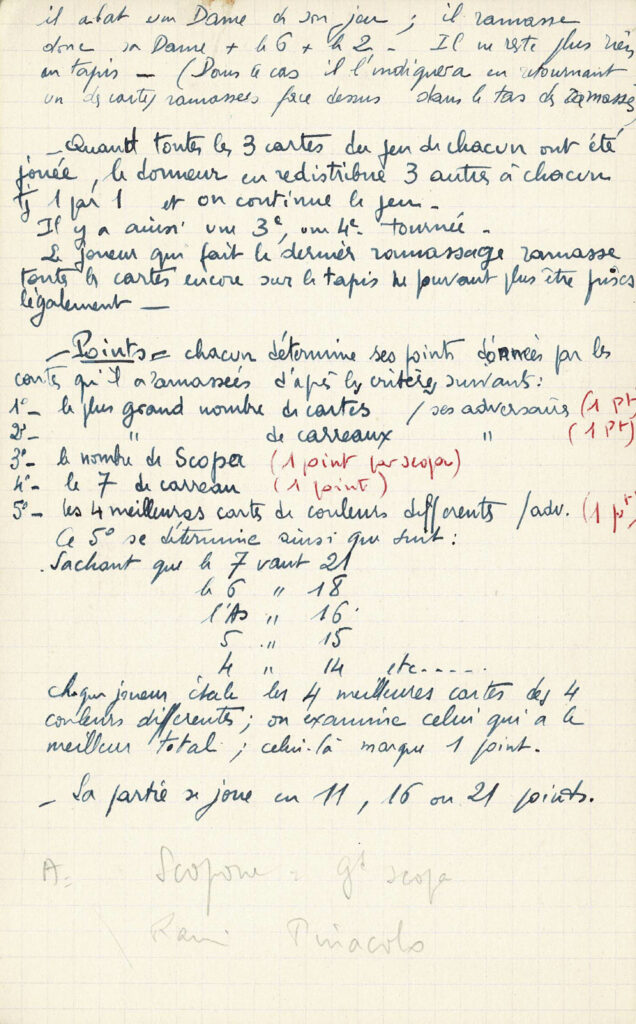 il abat une Dame de son jeu ; il ramasse
donc sa Dame + le 6 + le 2 - Il ne reste plus rien
en tapis - (Dans ce cas il l'indiquera en retournant
un des cartes ramassées face dessus dans le tas de ramassés)
- Quand toutes les 3 cartes du jeu de chacun ont été
jouée, le donneur en redistribue 3 autres à chacun
1 par 1 et on continue le jeu -
Il y a ainsi une 3e, une 4e tournée -
Le joueur qui fait le dernier ramassage ramasse
toutes les cartes encore sur le tapis ne pouvant plus être prises
légalement -
- Points = chacun détermine ses points donnés par les
cartes qu'il a ramassées d'après les critères suivant :
1°- le plus grand nombre de cartes / ses adversaires (1 Pt)
2°- " de carreaux " (1 Pt)
3°- le nombre de Scopa (1 point par scopa)
4°- le 7 de carreau (1 point)
5°- les 4 meilleures cartes de couleurs differentes / adv. (1 pt)
Ce 5° se détermine ainsi que suit :
Sachant que le 7 vaut 21
le 6 " 18
l'As " 16
5 " 15
4 " 14 etc.....
chaque joueur étale les 4 meilleures cartes des 4
couleurs differentes ; on examine celui qui a le
meilleur total ; celui-là marque 1 point.
- La partie se joue en 11, 16 ou 21 points.
A = Scopone = gd scopa
Rami Pinacolo